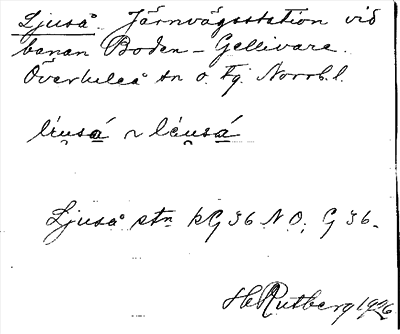 Ljuså. Järnvägsstation vid
banan Boden – Gellivare.
Överluleå sn o. Tg. Norrb. l.
Ljuså stn kG 36 NO; G 36.
H Rutberg 1926